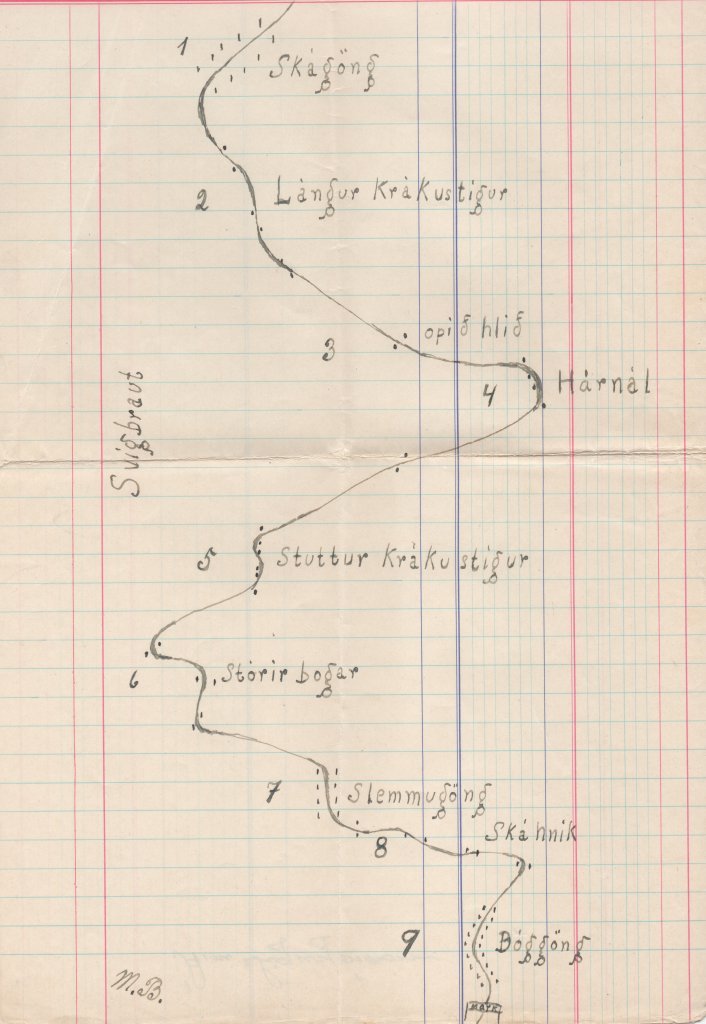 1
Skágöng
2
Lángur Krákustigur
3
opið hlið
4
Hárnál
Svigbraut
5
Stuttur Krákustigur
6
Stórir bogar
7
Slemmugöng
Skáhnik
8
9
Bóggöng
MARK
M.B.